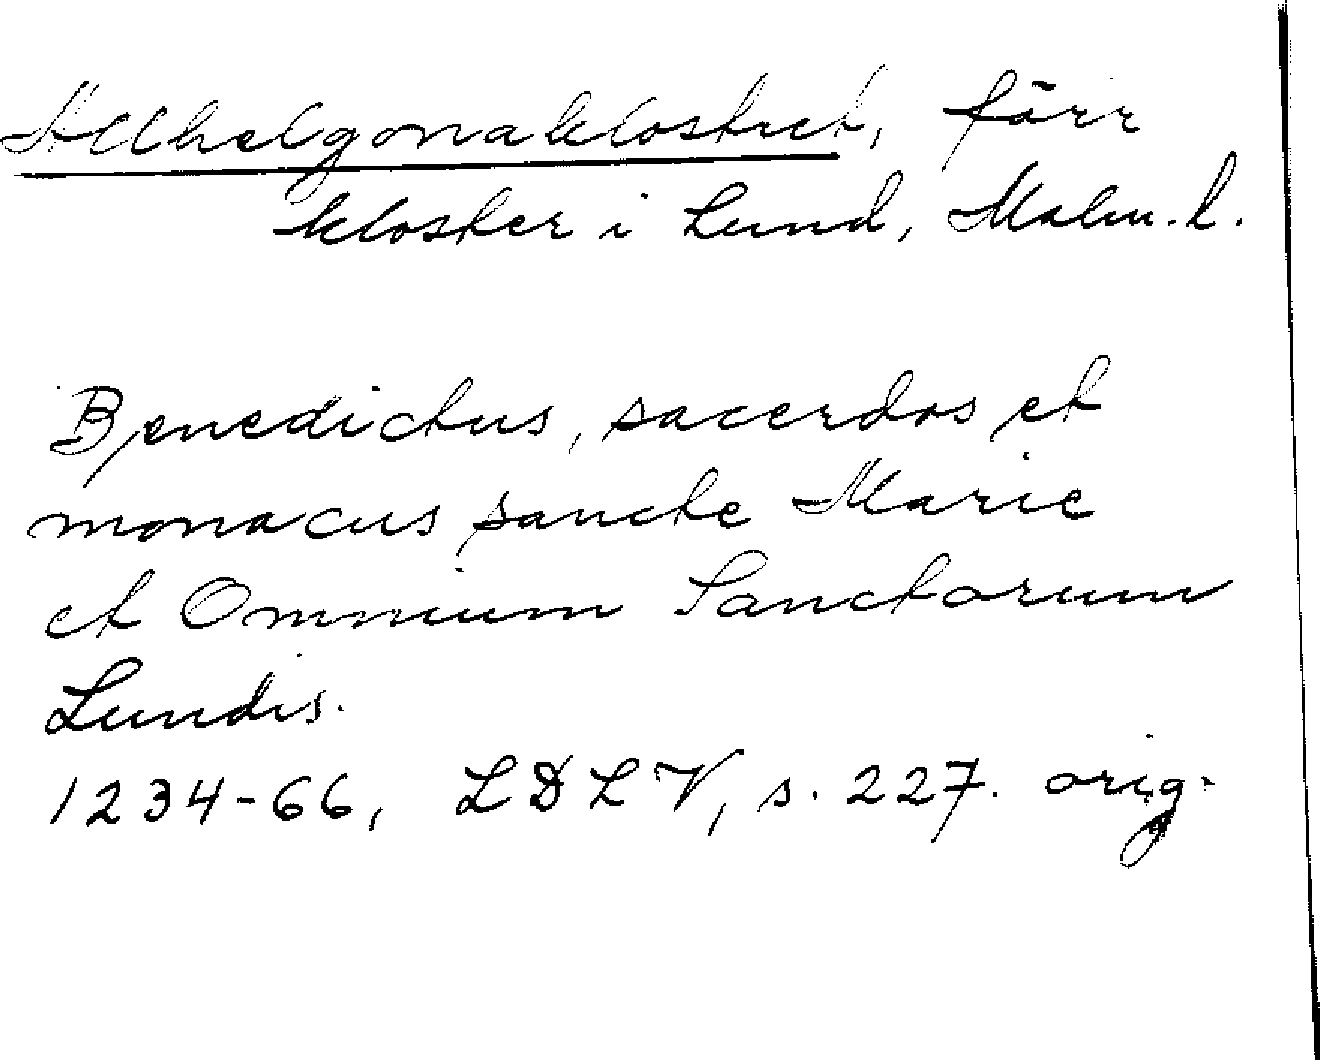 Allhelgonaklostret, förr
kloster i Lund, Malm. l.
Benedictus, sacerdos et
monacus sancte Marie
et Omnium Sanctorum
Lundis.
1234-66, LDLV, s. 227. orig.